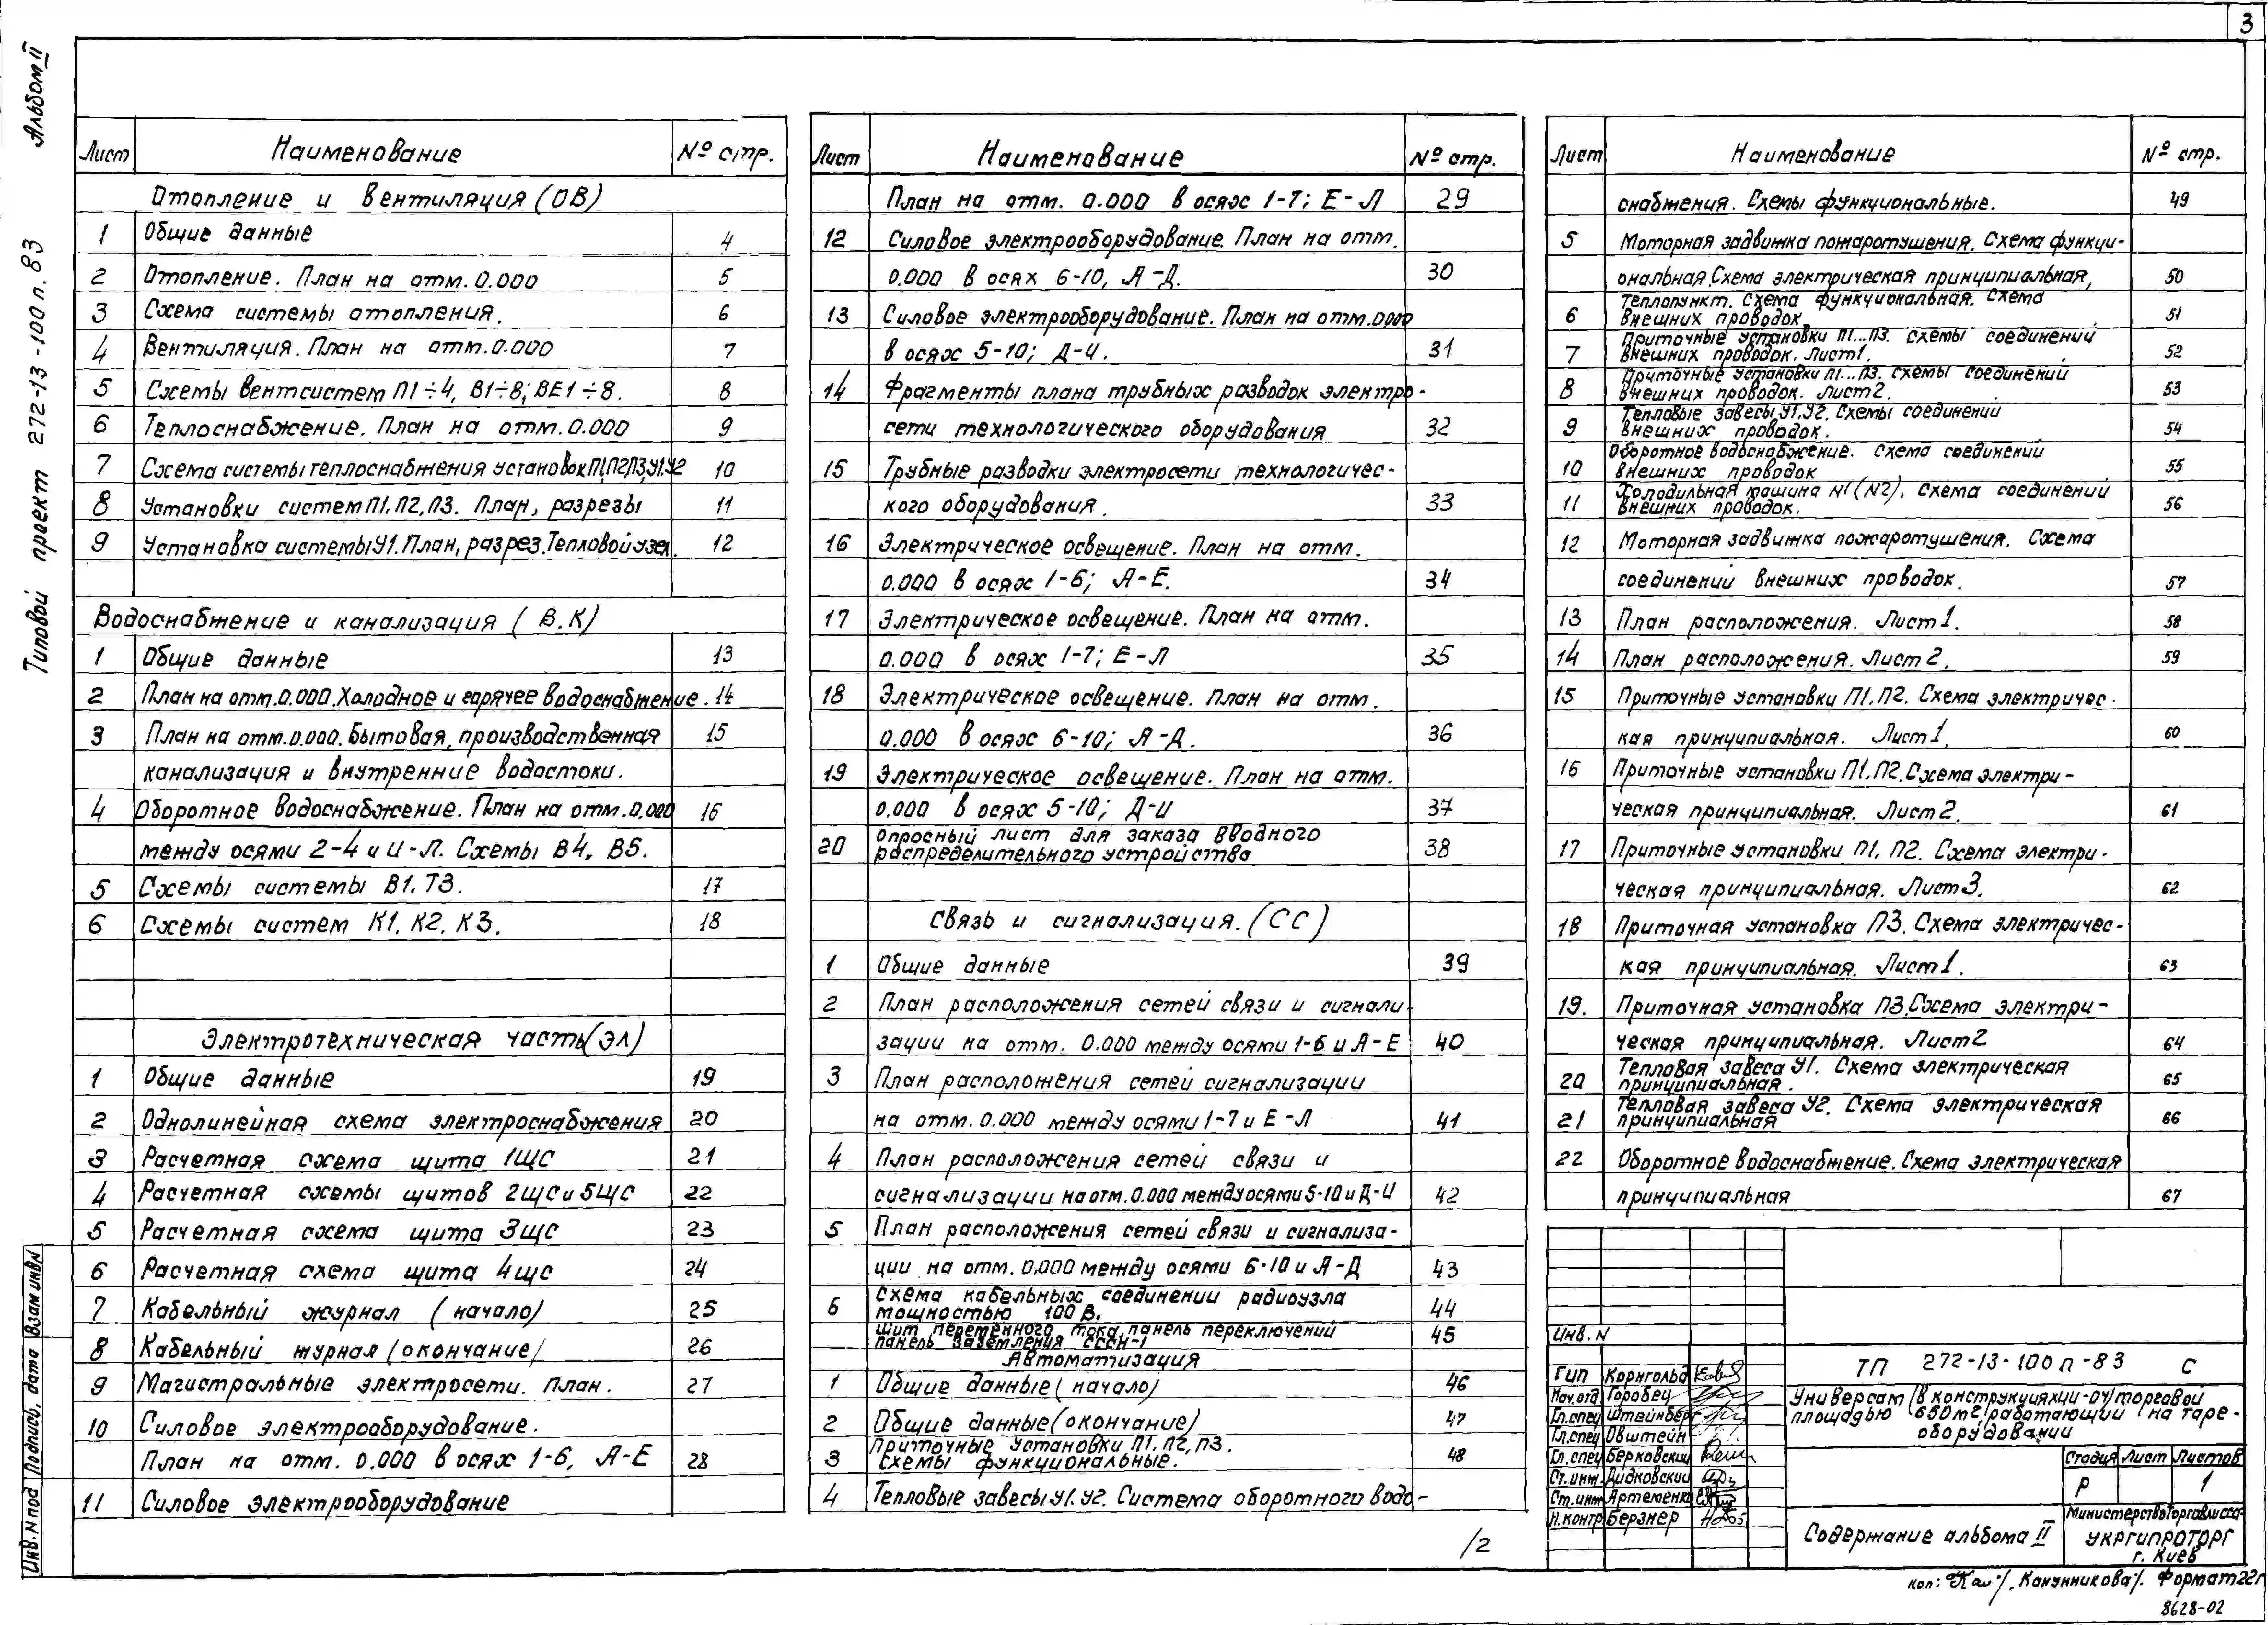 3
Альбом II
Типовой проект 272-13-100п.83
Лист Наименование № стр.
Отопление и вентиляция (ОВ)
1 Общие данные 4
2 Отопление. План на отм. 0.000 5
3 Схема системы отопления. 6
4 Вентиляция. План на отм. 0.000 7
5 Схемы вентсистем П1÷4, В1÷8; ВЕ1÷8. 8
6 Теплоснабжение. План на отм. 0.000 9
7 Схема системы теплоснабжения установок П1,П2,П3,У1.У2 10
8 Установки систем П1, П2, П3. План, разрезы 11
9 Установка системы У1. План, разрез. Тепловой узел. 12
Водоснабжение и канализация ( В.К)
1 Общие данные 13
2 План на отм. 0.000. Холодное и горячее водоснабжение. 14
3 План на отм. 0.000. Бытовая, производственная 15
канализация и внутренние водостоки.
4 Оборотное водоснабжение. План на отм. 0.000 16
между осями 2-4 и И-Л. Схемы В4, В5.
5 Схемы системы В1, Т3. 17
6 Схемы систем К1, К2, К3. 18
Электротехническая часть (ЭЛ)
1 Общие данные 19
2 Однолинейная схема электроснабжения 20
3 Расчетная схема щита 1ЩС 21
4 Расчетная схемы щитов 2ЩС и 5ЩС 22
5 Расчетная схема щита 3ЩС 23
6 Расчетная схема щита 4ЩС 24
7 Кабельный журнал (начало) 25
8 Кабельный журнал (окончание) 26
9 Магистральные электросети. План. 27
10 Силовое электрооборудование.
План на отм. 0.000 в осях 1-6, А-Е 28
11 Силовое электрооборудование
Лист Наименование № стр.
План на отм. 0.000 в осях 1-7; Е-Л 29
12 Силовое электрооборудование. План на отм.
0.000 в осях 6-10, А-Д. 30
13 Силовое электрооборудование. План на отм. 0.000
в осях 5-10; Д-И. 31
14 Фрагменты плана трубных разводок электро-
сети технологического оборудования 32
15 Трубные разводки электросети технологичес-
кого оборудования. 33
16 Электрическое освещение. План на отм.
0.000 в осях 1-6; А-Е. 34
17 Электрическое освещение. План на отм.
0.000 в осях 1-7; Е-Л 35
18 Электрическое освещение. План на отм.
0.000 в осях 6-10; А-Д. 36
19 Электрическое освещение. План на отм.
0.000 в осях 5-10; Д-И 37
20 Опросный лист для заказа вводного
распределительного устройства 38
Связь и сигнализация. (СС)
1 Общие данные 39
2 План расположения сетей связи и сигнали-
зации на отм. 0.000 между осями 1-6 и А-Е 40
3 План расположения сетей сигнализации
на отм. 0.000 между осями 1-7 и Е-Л 41
4 План расположения сетей связи и
сигнализации на отм. 0.000 между осями 5-10 и Д-И 42
5 План расположения сетей связи и сигнализа-
ции на отм. 0.000 между осями 6-10 и А-Д 43
6 Схема кабельных соединении радиоузла
мощностью 100 В. 44
щит переменного тока, панель переключений
панель заземления СССН-1 45
Автоматизация
1 Общие данные (начало) 46
2 Общие данные (окончание) 47
3 Приточные установки П1, П2, П3.
Схемы функциональные. 48
4 Тепловые завесы У1. У2. Система оборотного водо-
/2
Лист Наименование № стр.
снабжения. Схемы функциональные. 49
5 Моторная задвижка пожаротушения. Схема функци-
ональная. Схема электрическая принципиальная, 50
6 Теплопункт. Схема функциональная. Схема
внешних проводок 51
7 Приточные установки П1...П3. Схемы соединений
внешних проводок. Лист 1. 52
8 Приточные установки П1...П3. Схемы соединений
внешних проводок. Лист 2. 53
9 Тепловые завесы У1.У2. Схемы соединений
внешних проводок. 54
10 Оборотное водоснабжение. Схема соединений
внешних проводок 55
11 Холодильная машина №1 (№2). Схема соединений
внешних проводок. 56
12 Моторная задвижка пожаротушения. Схема
соединений внешних проводок. 57
13 План расположения. Лист 1. 58
14 План расположения. Лист 2. 59
15 Приточные установки П1, П2. Схема электричес-
кая принципиальная. Лист 1. 60
16 Приточные установки П1, П2. Схема электри-
ческая принципиальная. Лист 2. 61
17 Приточные установки П1, П2. Схема электри-
ческая принципиальная. Лист 3. 62
18 Приточная установка П3. Схема электричес-
кая принципиальная. Лист 1. 63
19. Приточная установка П3. Схема электри-
ческая принципиальная. Лист 2 64
20 Тепловая завеса У1. Схема электрическая
принципиальная. 65
21 Тепловая завеса У2. Схема электрическая
принципиальная 66
22 Оборотное водоснабжение. Схема электрическая
принципиальная 67
Инв. N
ГИП Корнгольд
Нач.отд Горобец
Гл.спец Штейнберг
Гл.спец Овштейн
Гл.спец Берковский
Ст.инж. Дидковский
Ст.инж Артеменко
Н.контр Берзнер
ТП 272-13-100п-83 С
Универсам (в конструкциях ИИ-04) торговой
площадью 650м2, работающий на таре-
оборудовании
Стадия Лист Листов
Р 1
Содержание альбома II
Министерство торговли СССР
УКРГИПРОТОРГ
г. Киев
Коп: Кан /Канунникова/. Формат 22г
8628-02
Инв.N под Подпись, дата Взам инв N